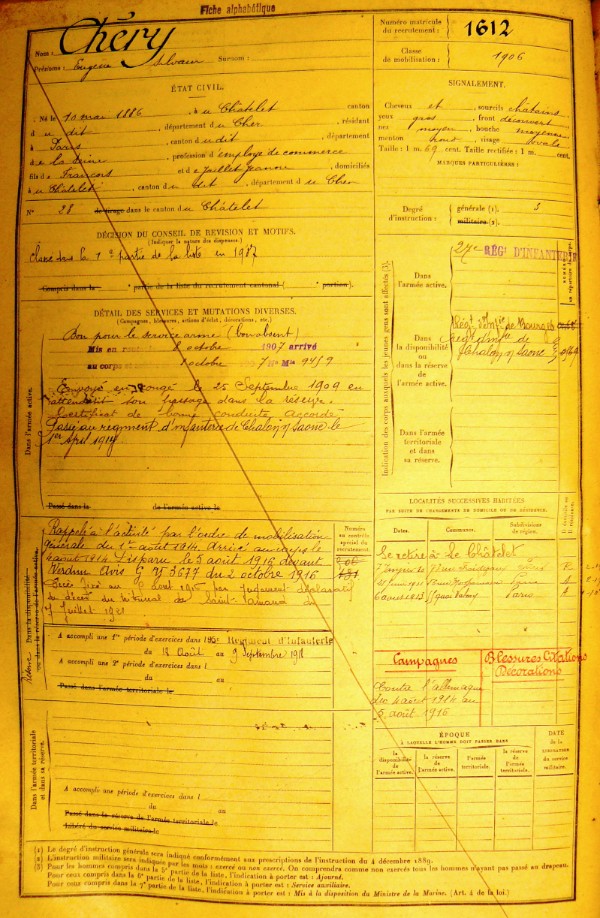 Fiche alphabétique
Nom : Chéry
Prénoms : Eugène Silvain Surnom :
Numéro matricule du recrutement : 1612
Classe de mobilisation : 1906
ÉTAT CIVIL.
Né le 10 mai 1886, à u Châtelet, canton
d u dit, département d u Cher, résidant
à Paris, canton d u dit, département
de la Seine, profession d'employé de commerce
fils de François et de Juillet Jeanne, domiciliés
à u Châtelet, canton du dit, département d u Cher
N° 28 de tirage dans le canton d u Châtelet
SIGNALEMENT.
Cheveux et sourcils châtains
yeux gris, front découvert
nez moyen, bouche moyenne
menton rond, visage ovale
Taille : 1 m. 69 cent. Taille rectifiée : 1 m. cent.
MARQUES PARTICULIÈRES :
Degré d'instruction :
générale (1). 3
militaire (2).
DÉCISION DU CONSEIL DE REVISION ET MOTIFS.
(Indiquer la nature des dispenses.)
Classé dans la 1e partie de la liste en 1907
Compris dans la partie de la liste du recrutement cantonal ( portion).
DÉTAIL DES SERVICES ET MUTATIONS DIVERSES.
(Campagnes, blessures, actions d'éclat, décorations, etc.)
Bon pour le service armé (bon absent)
octobre 1907 arrivé
au corps
octobre
Envoyé en congé le 25 Septembre 1909 en
attendant son passage dans la réserve.
Certificat de bonne conduite accordé
Passé au régiment d'infanterie de Chalon s/ Saône le
1er Avril 1914
Dans l'armée active.
Passé dans la de l'armée active le
Indication des corps auxquels les jeunes gens sont affectés (3).
Dans l'armée active.
27e RÉGt D'INFANTERIE
Dans la disponibilité ou dans la réserve de l'armée active.
Régt d'Infie de Bourges
Régt d'Infie de Chalon s/ Saône
Dans l'armée territoriale et dans sa réserve.
Rappelé à l'activité par l'ordre de mobilisation
générale du 1er août 1914. Arrivé au corps le
4 août 1914. Disparu le 5 août 1916 devant
Verdun. Avis N 3677 du 2 octobre 1916
5 août 1916 par jugement déclaratif
de décès du tribunal de Saint-Amand du
7 Juillet 1921
Numéro au contrôle spécial du recrutement
Dans la disponibilité
ou dans la réserve de l'armée active.
A accompli une 1re période d'exercices dans l 95e Régiment d'Infanterie
du 18 Août au 9 Septembre 1911
A accompli une 2e période d'exercices dans l
du au
Passé dans l'armée territoriale le
LOCALITÉS SUCCESSIVES HABITÉES
PAR SUITE DE CHANGEMENTS DE DOMICILE OU DE RÉSIDENCE.
Dates. Communes. Subdivisions de région.
Se retire à Le Châtelet
Paris
Campagnes
Blessures Citations Décorations
Contre l'Allemagne
du 4 août 1914 au
5 août 1916
Dans l'armée territoriale et dans sa réserve.
A accompli une période d'exercices dans l
du au
Passé dans la réserve de l'armée territoriale le
Libéré du service militaire le
ÉPOQUE
À LAQUELLE L'HOMME DOIT PASSER DANS
la disponibilité de l'armée active.
la réserve de l'armée active.
l'armée territoriale.
la réserve de l'armée territoriale.
DATE de la LIBÉRATION du service militaire.
(1) Le degré d'instruction générale sera indiqué conformément aux prescriptions de l'instruction du 4 décembre 1889.
(2) L'instruction militaire sera indiquée par les mots : exercé ou non exercé. On comprendra comme non exercés tous les hommes n'ayant pas passé au drapeau.
(3) Pour les hommes compris dans la 5e partie de la liste, l'indication à porter est : Ajourné.
Pour ceux compris dans la 6e partie de la liste, l'indication à porter est : Service auxiliaire.
Pour ceux compris dans la 7e partie de la liste, l'indication à porter est : Mis à la disposition du Ministre de la Marine. (Art. 4 de la loi.)